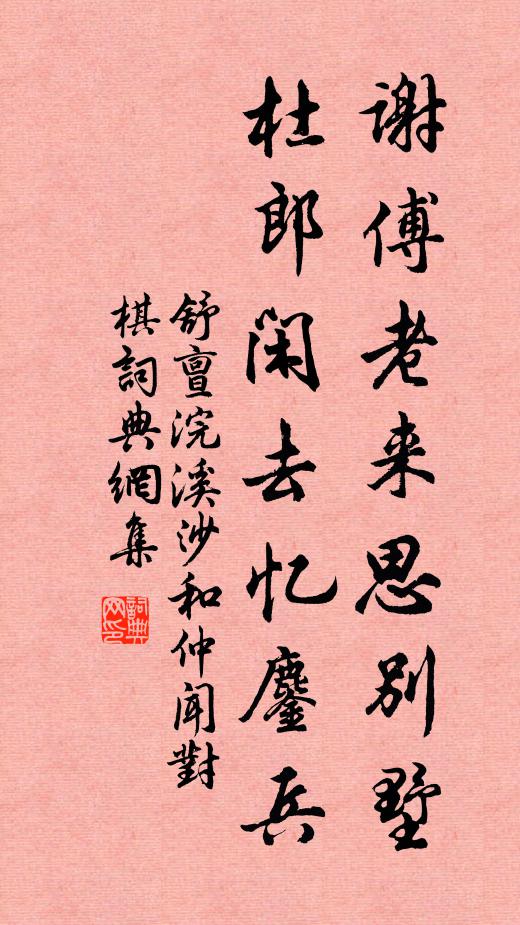 谢傅老来思别墅
杜郎闲去忆鏖兵
舒亶浣溪沙和仲闻對
棋詞典網集
詞典网印